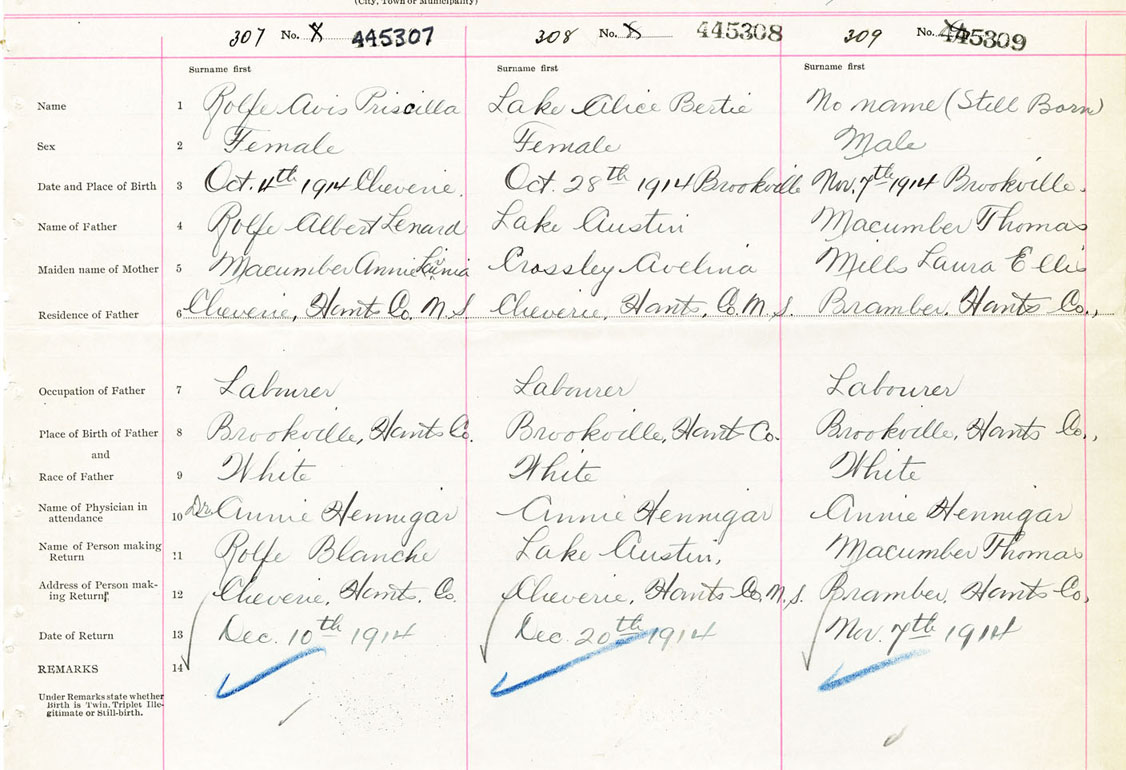 (City, Town or Municipality)
307 No. X 445307 308 No. X 445308 309 No. X 445309
Surname first Surname first Surname first
Name 1 Rolfe Avis Priscilla Lake Alice Bertie No name (Still Born)
Sex 2 Female Female Male
Date and Place of Birth 3 Oct. 4th 1914 Cheverie. Oct. 28th 1914 Brookville Nov. 7th 1914 Brookville.
Name of Father 4 Rolfe Albert Lenard Lake Austin Macumber Thomas
Maiden name of Mother 5 Macumber Annie Crossley Avelina Mills Laura Ellis
Residence of Father 6 Cheverie, Hants Co. N.S. Cheverie, Hants, Co. N.S. Bramber, Hants Co.,
Occupation of Father 7 Labourer Labourer Labourer
Place of Birth of Father 8 Brookville, Hants Co. Brookville, Hant Co. Brookville, Hants Co.,
and
Race of Father 9 White White White
Name of Physician in
attendance 10 Dr. Annie Hennigar Annie Hennigar Annie Hennigar
Name of Person making
Return 11 Rolfe Blanche Lake Austin, Macumber Thomas
Address of Person mak-
ing Return 12 Cheverie, Hants. Co. Cheverie, Hants Co. N.S. Bramber, Hants Co,
Date of Return 13 Dec. 10th 1914 Dec. 20th 1914 Nov. 7th 1914
REMARKS 14
Under Remarks state whether
Birth is Twin, Triplet Ille-
gitimate or Still-birth.